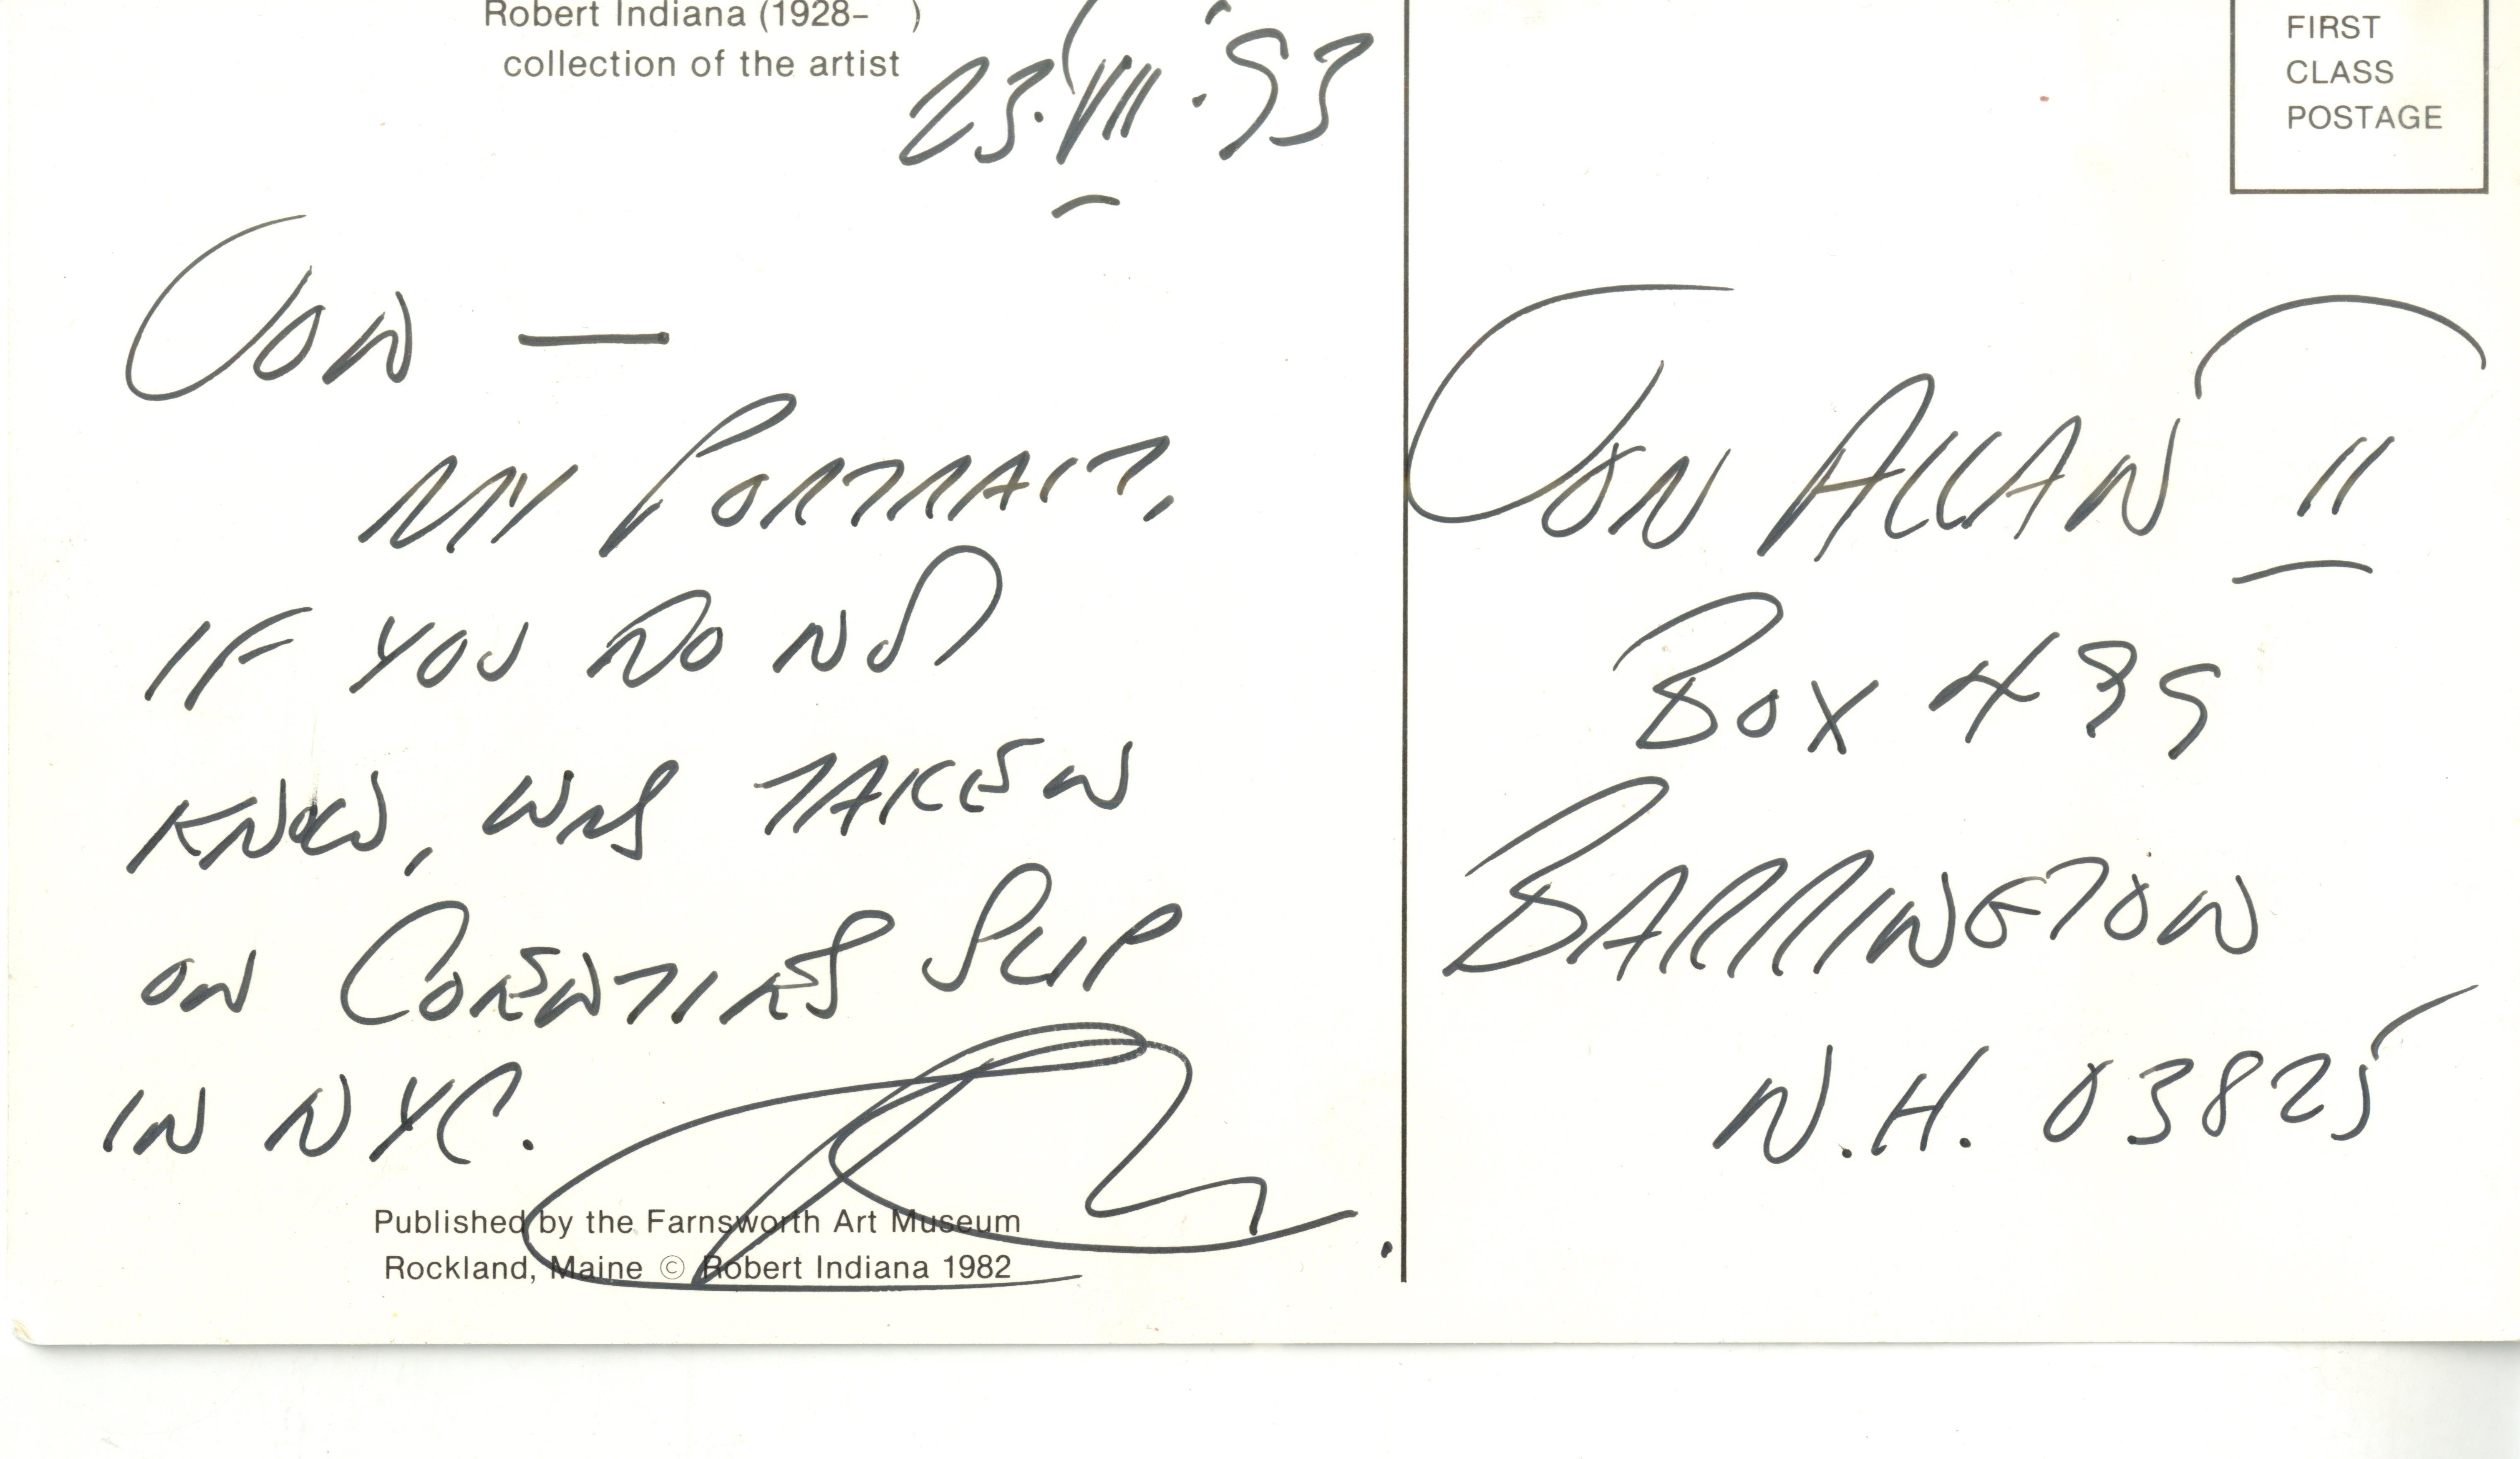 Robert Indiana (1928– )
collection of the artist
23.VIII.'93
JON —
MY PORTRAIT,
IF YOU DO NOT
KNOW, WAS TAKEN
ON COENTIES SLIP
IN NYC.
Published by the Farnsworth Art Museum
Rockland, Maine © Robert Indiana 1982
FIRST
CLASS
POSTAGE
JON ALLAN II
BOX 439
BARRINGTON
N.H. 03825